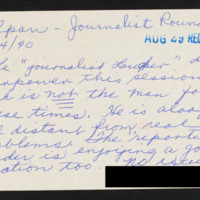 span - Journalist Roun
4/90
AUG 29 REC
"journalist Lawyer" d
power this session
is not the man for
se times. He is aloo
distant from real
blems. The reporti
der is enjoying a go
ation too.